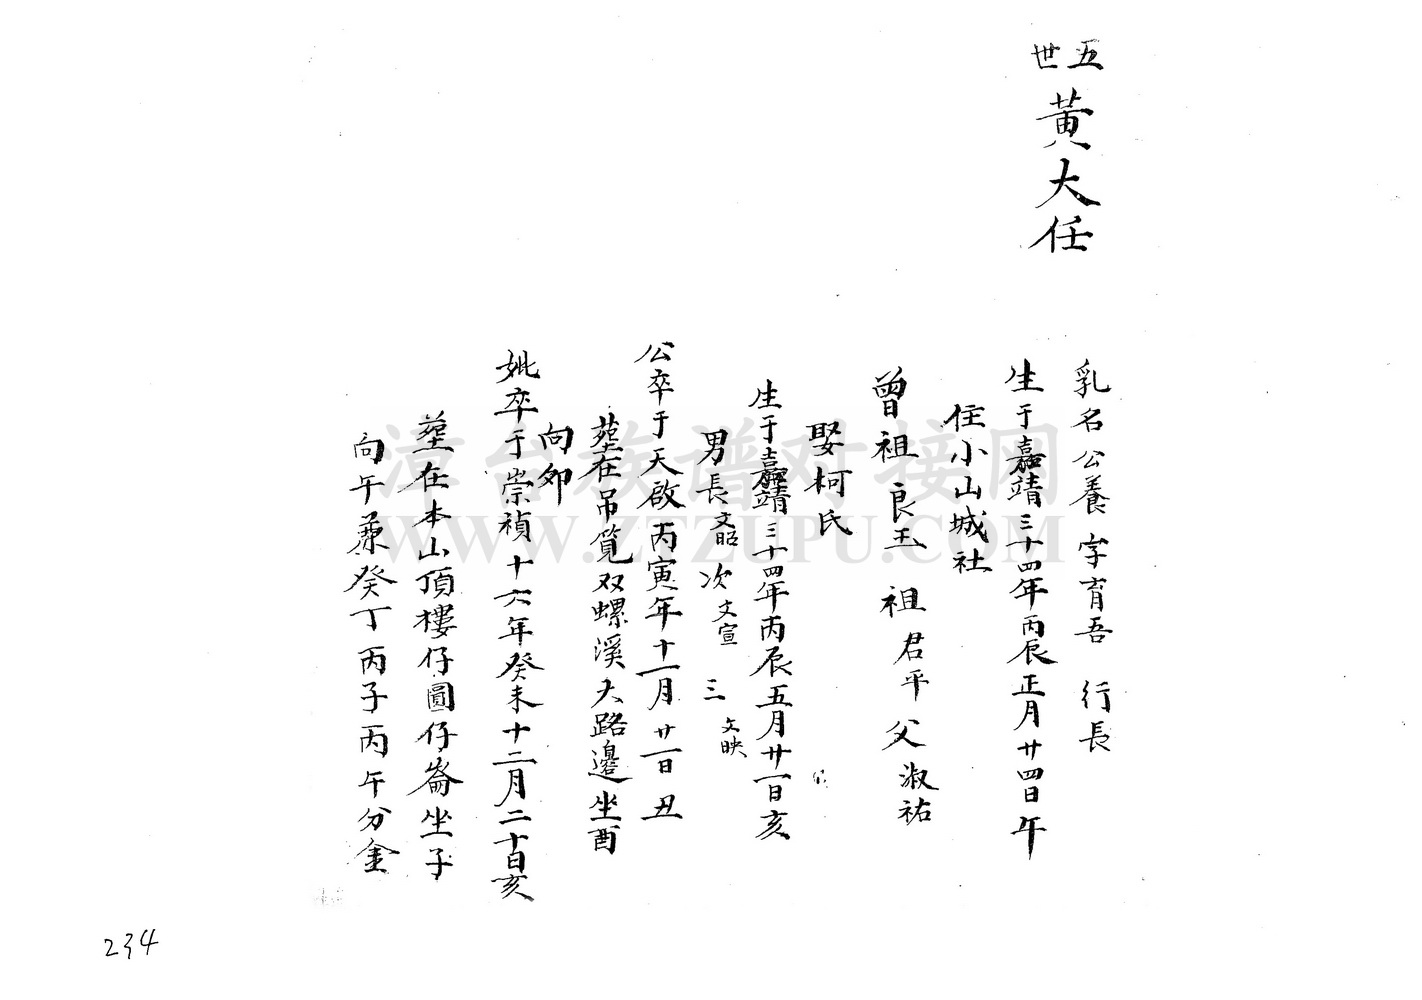 五世
黃大任
乳名公養 字育吾 行長
生于嘉靖三十四年丙辰正月廿四日午
住小山城社
曾祖良玉 祖君平 父淑祐
娶柯氏
生于嘉靖三十四年丙辰五月廿一日亥
男長文昭 次文宣 三文映
公卒于天啟丙寅年十一月廿一日丑
塟在吊筧双螺溪大路邊坐酉
向卯
妣卒于崇禎十六年癸未十二月二十日亥
塟在本山頂樓仔圓仔崙坐子
向午兼癸丁丙子丙午分金
漳台族譜对接网
WWW.ZTZUPU.COM
234